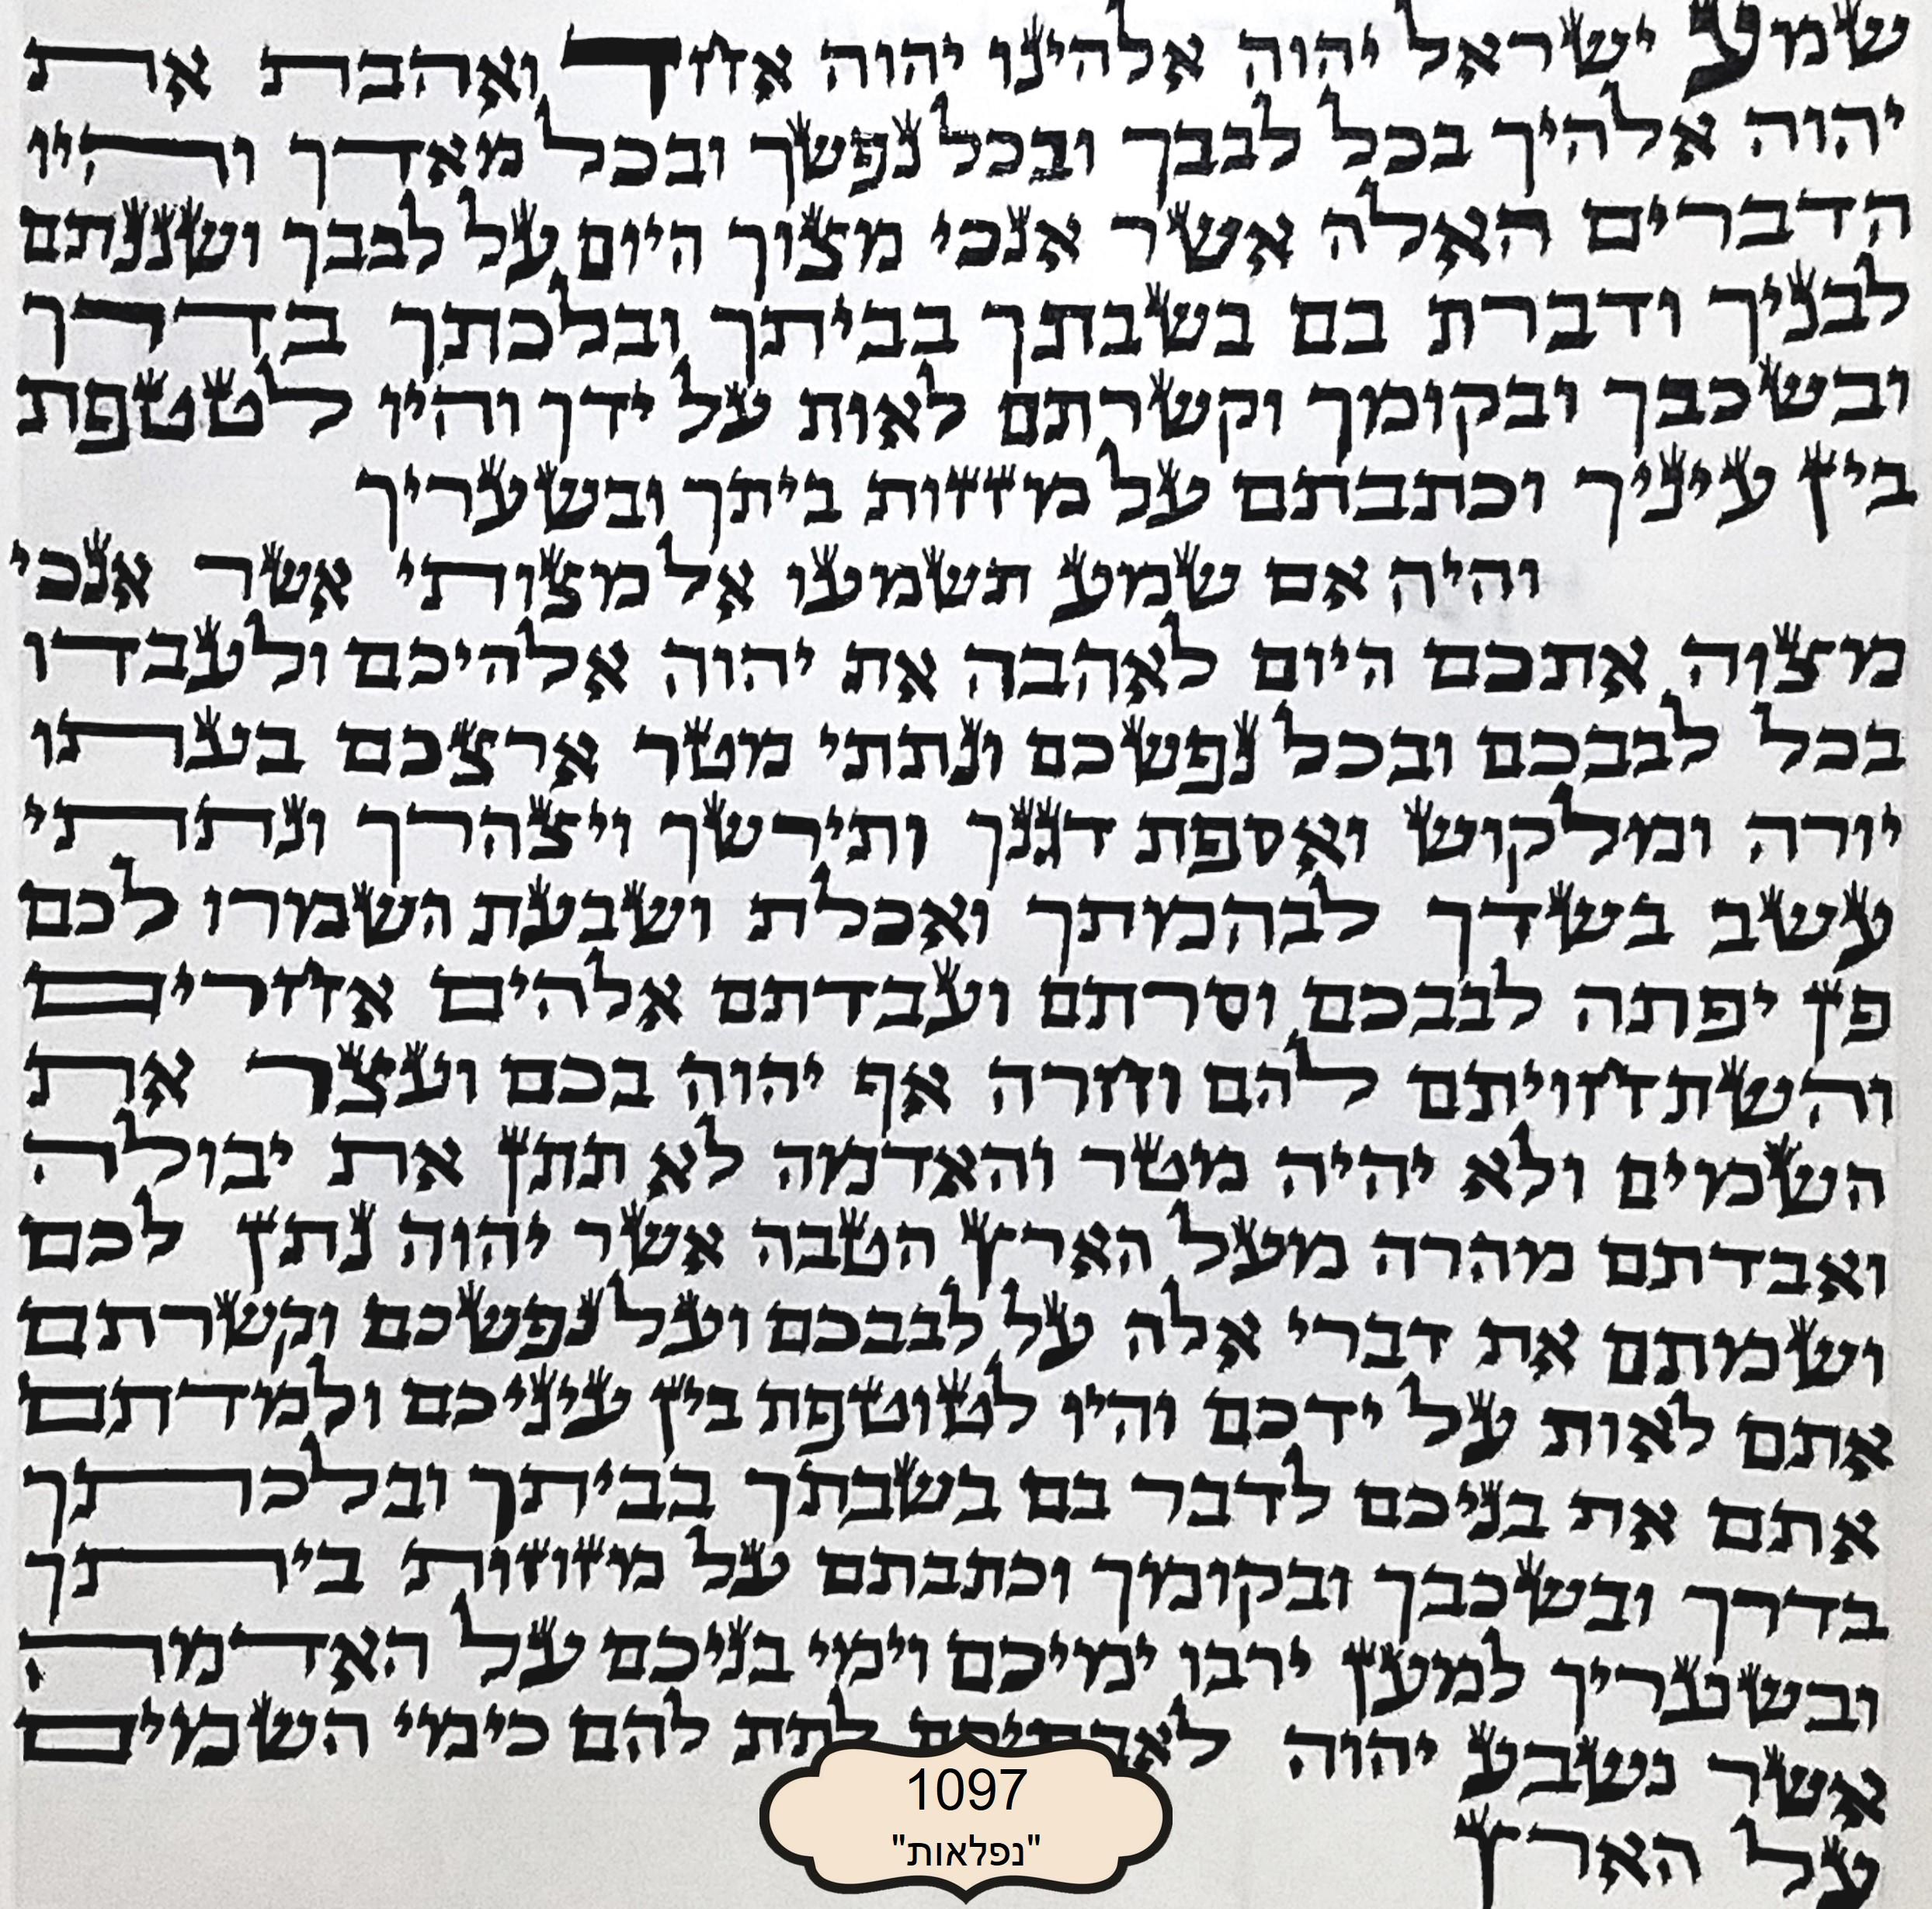 שמע ישראל יהוה אלהינו יהוה אחד ואהבת את
יהוה אלהיך בכל לבבך ובכל נפשך ובכל מאדך והיו
הדברים האלה אשר אנכי מצוך היום על לבבך ושננתם
לבניך ודברת בם בשבתך בביתך ובלכתך בדרך
ובשכבך ובקומך וקשרתם לאות על ידך והיו לטטפת
בין עיניך וכתבתם על מזזות ביתך ובשעריך
והיה אם שמע תשמעו אל מצותי אשר אנכי
מצוה אתכם היום לאהבה את יהוה אלהיכם ולעבדו
בכל לבבכם ובכל נפשכם ונתתי מטר ארצכם בעתו
יורה ומלקוש ואספת דגנך ותירשך ויצהרך ונתתי
עשב בשדך לבהמתך ואכלת ושבעת השמרו לכם
פן יפתה לבבכם וסרתם ועבדתם אלהים אחרים
והשתחויתם להם וחרה אף יהוה בכם ועצר את
השמים ולא יהיה מטר והאדמה לא תתן את יבולה
ואבדתם מהרה מעל הארץ הטבה אשר יהוה נתן לכם
ושמתם את דברי אלה על לבבכם ועל נפשכם וקשרתם
אתם לאות על ידכם והיו לטוטפת בין עיניכם ולמדתם
אתם את בניכם לדבר בם בשבתך בביתך ובלכתך
בדרך ובשכבך ובקומך וכתבתם על מזוזות ביתך
ובשעריך למען ירבו ימיכם וימי בניכם על האדמה
אשר נשבע יהוה לאבתיכם לתת להם כימי השמים
על הארץ
1097
"נפלאות"